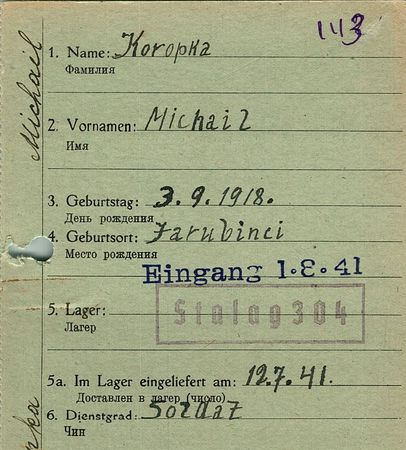 143
Michail
1. Name: Koropka
Фамилия
2. Vornamen: Michail
Имя
3. Geburtstag: 3.9.1918.
День рождения
4. Geburtsort: Jarubinci
Место рождения
Eingang 1.8.41
5. Lager: Stalag 304
Лагер
5a. Im Lager eingeliefert am: 12.7.41.
Доставлен в лагер (число)
6. Dienstgrad: Soldat
Чин